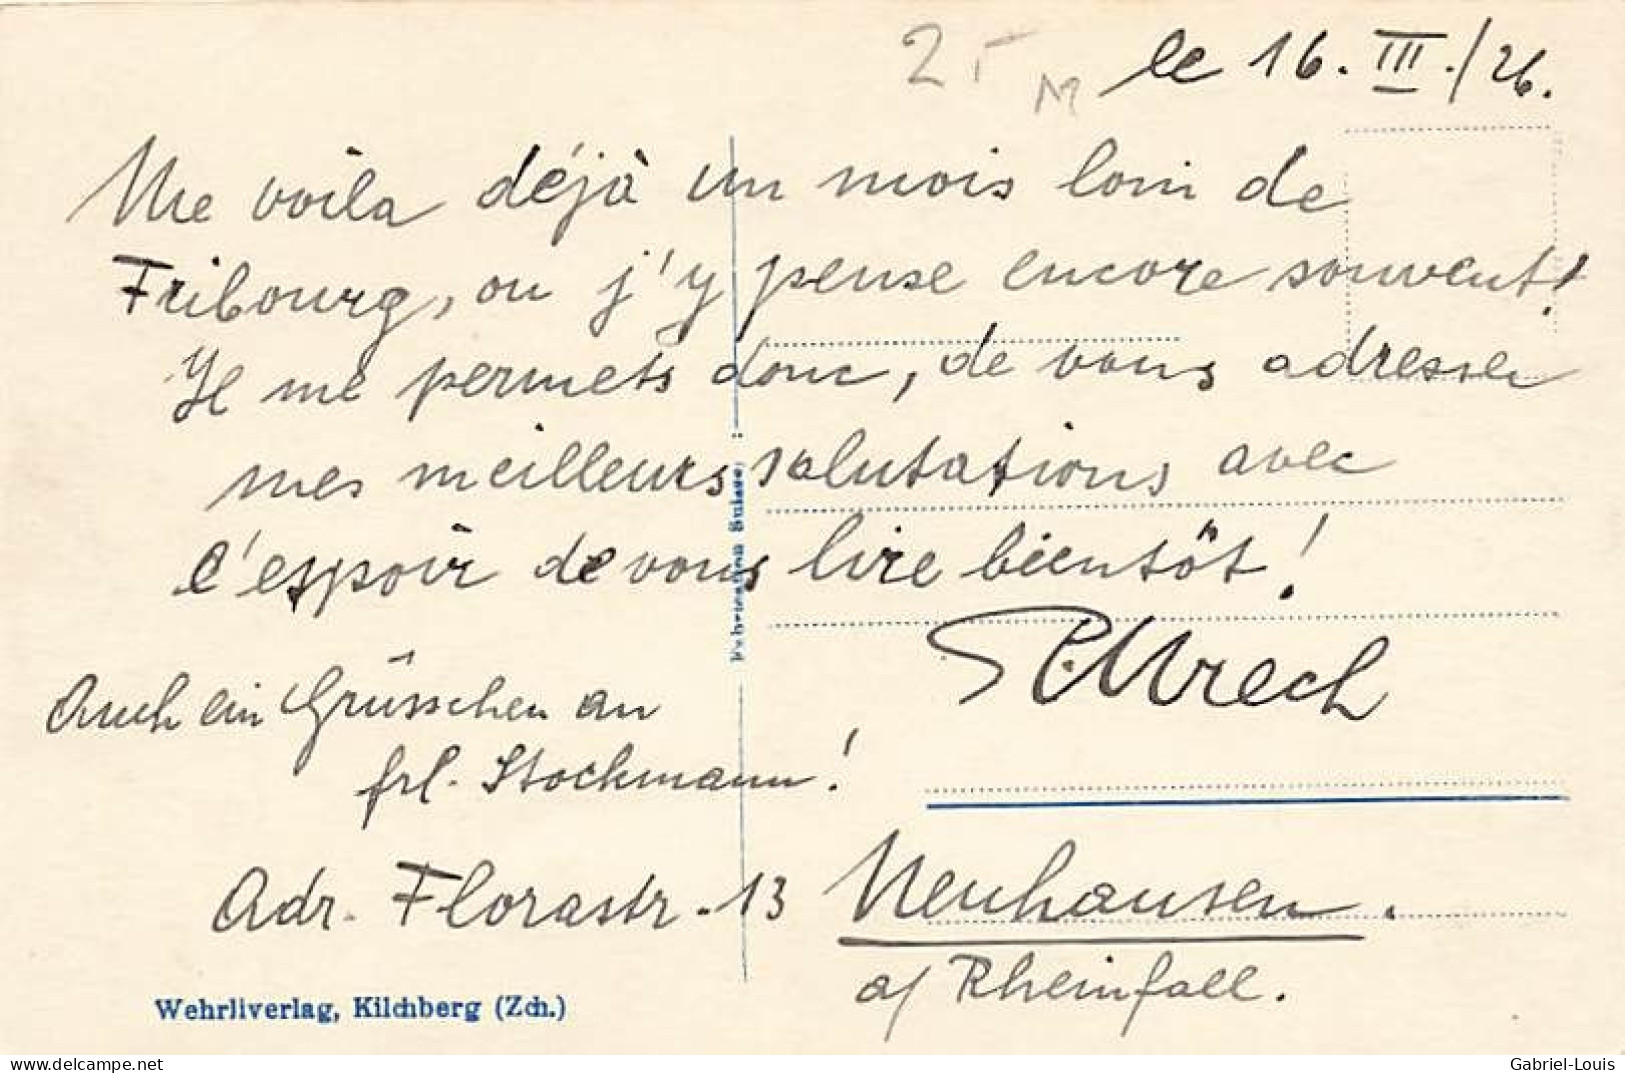 le 16. III./26.
Me voila déjà un mois loin de
Fribourg, ou j'y pense encore souvent!
Je me permets donc, de vous adresser
mes meilleurs salutations avec
l'espoir de vous lire bientôt!
Urech
Auch ein Grüsschen an
frl. Stockmann!
Adr. Florastr. 13 Neuhausen.
a/ Rheinfall.
Wehrliverlag, Kilchberg (Zch.)
Fabrication Suisse
delcampe.net
Gabriel-Louis